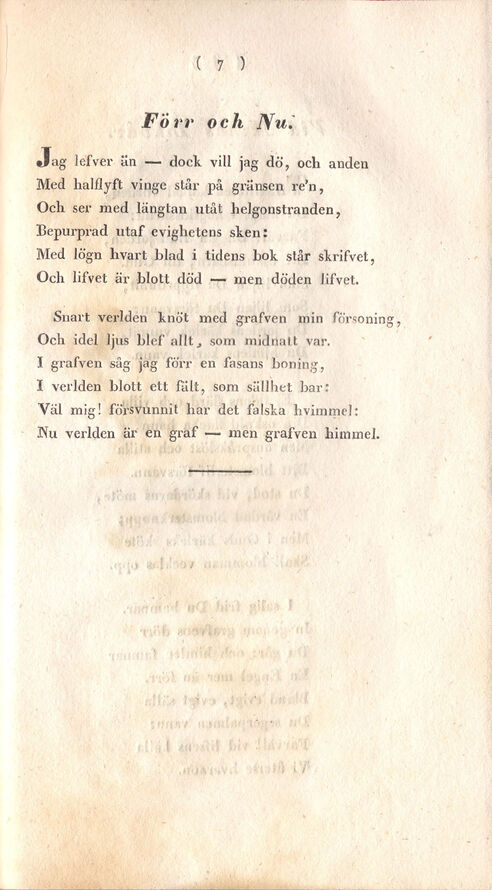 ( 7 )
Förr och Nu.
Jag lefver än — dock vill jag dö, och anden
Med halflyft vinge står på gränsen re'n,
Och ser med längtan utåt helgonstranden,
Bepurprad utaf evighetens sken:
Med lögn hvart blad i tidens bok står skrifvet,
Och lifvet är blott död — men döden lifvet.
Snart verlden knöt med grafven min försoning,
Och idel ljus blef allt, som midnatt var.
I grafven såg jag förr en fasans boning,
I verlden blott ett fält, som sällhet bar:
Väl mig! försvunnit har det falska hvimmel:
Nu verlden är en graf — men grafven himmel.